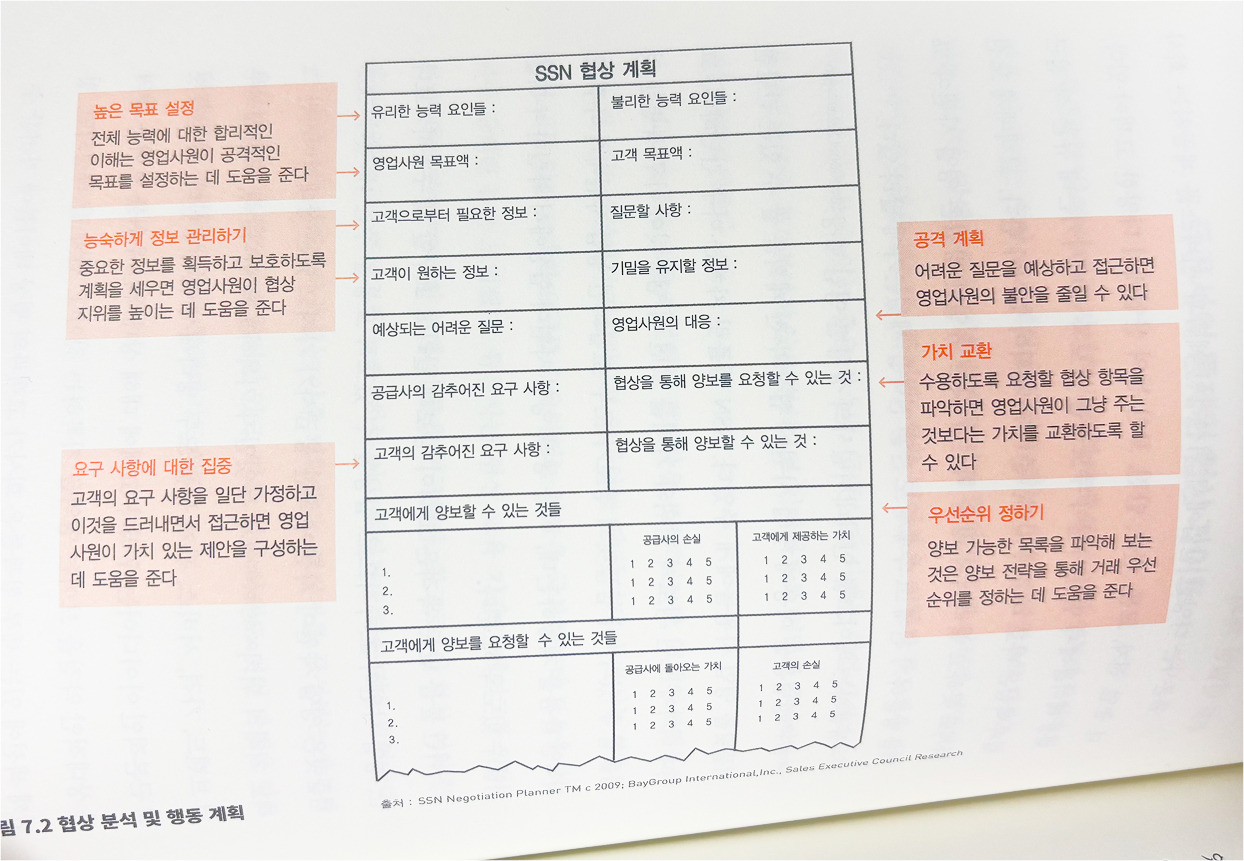 SSN 협상 계획
높은 목표 설정
전체 능력에 대한 합리적인
이해는 영업사원이 공격적인
목표를 설정하는 데 도움을 준다
유리한 능력 요인들 :
불리한 능력 요인들 :
영업사원 목표액 :
고객 목표액 :
능숙하게 정보 관리하기
중요한 정보를 획득하고 보호하도록
계획을 세우면 영업사원이 협상
지위를 높이는 데 도움을 준다
고객으로부터 필요한 정보 :
질문할 사항 :
고객이 원하는 정보 :
기밀을 유지할 정보 :
공격 계획
어려운 질문을 예상하고 접근하면
영업사원의 불안을 줄일 수 있다
예상되는 어려운 질문 :
영업사원의 대응 :
가치 교환
수용하도록 요청할 협상 항목을
파악하면 영업사원이 그냥 주는
것보다는 가치를 교환하도록 할
수 있다
공급사의 감추어진 요구 사항 :
협상을 통해 양보를 요청할 수 있는 것 :
요구 사항에 대한 집중
고객의 요구 사항을 일단 가정하고
이것을 드러내면서 접근하면 영업
사원이 가치 있는 제안을 구성하는
데 도움을 준다
고객의 감추어진 요구 사항 :
협상을 통해 양보할 수 있는 것 :
우선순위 정하기
양보 가능한 목록을 파악해 보는
것은 양보 전략을 통해 거래 우선
순위를 정하는 데 도움을 준다
고객에게 양보할 수 있는 것들
공급사의 손실
고객에게 제공하는 가치
1. 1 2 3 4 5 1 2 3 4 5
2. 1 2 3 4 5 1 2 3 4 5
3. 1 2 3 4 5 1 2 3 4 5
고객에게 양보를 요청할 수 있는 것들
공급사에 돌아오는 가치
고객의 손실
1. 1 2 3 4 5 1 2 3 4 5
2. 1 2 3 4 5 1 2 3 4 5
3. 1 2 3 4 5 1 2 3 4 5
출처 : SSN Negotiation Planner TM c 2009; BayGroup International,Inc., Sales Executive Council Research
림 7.2 협상 분석 및 행동 계획